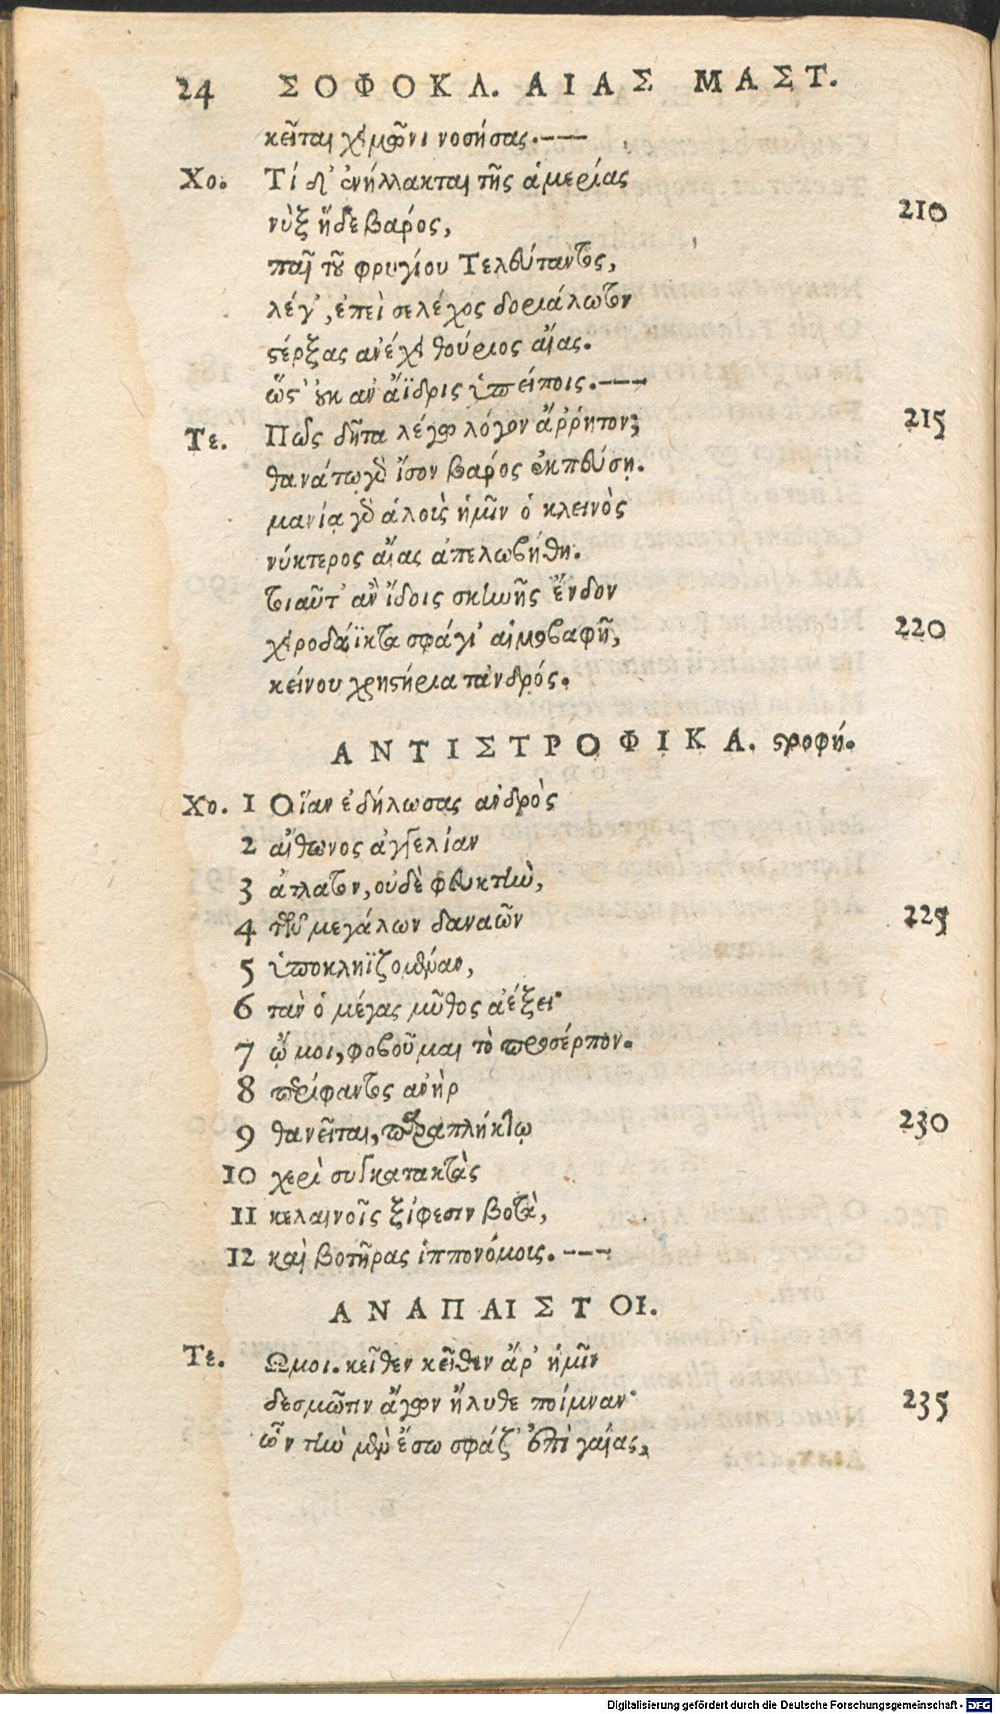 24 ΣΟΦΟΚΛ. ΑΙΑΣ ΜΑΣΤ.
κεῖται χειμῶνι νοσήσας.---
Χο. Τί δ' ἐνήλλακται τῆς ἁμερίας
νὺξ ἥδε βαρός, 210
παῖ τοῦ φρυγίου Τελεύταντος,
λέγ', ἐπεὶ σε λέχος δοριάλωτον
στέρξας ἀνέχει θούριος αἴας.
ὥστ' οὐκ ἂν ἄϊδρις ὑπείποις.---
Τε. Πῶς δῆτα λέγω λόγον ἄῤῥητον; 215
θανάτῳ γὸ ἴσον βαρός ἐκπεύσῃ.
μανίᾳ γὸ ἁλοὺς ἡμῖν ὁ κλεινὸς
νύκτερος αἴας ἀπελωβήθη.
τοιαῦτ' ἂν ἴδοις σκηνῆς ἔνδον
χειροδάϊκτα σφάγι' αἱμοβαφῆ, 220
κείνου χρηστήρια τἀνδρός.
ΑΝΤΙΣΤΡΟΦΙΚΑ. στροφή.
Χο. 1 Οἵαν ἐδήλωσας ἀνδρὸς
2 αἴθωνος ἀγγελίαν
3 ἄτλατον, οὐδὲ φευκτὴν,
4 τῶν μεγάλων δαναῶν 225
5 ὑποκληϊζομέναν,
6 τὰν ὁ μέγας μῦθος ἀέξει·
7 ᾤ μοι, φοβοῦμαι τὸ προσέρπον.
8 περίφαντος ἀνὴρ
9 θανεῖται, παραπλήκτῳ 230
10 χερὶ συγκατακτὰς
11 κελαινοῖς ξίφεσιν βοτὰ,
12 καὶ βοτῆρας ἱππονόμοις.---
ΑΝΑΠΑΙΣΤΟΙ.
Τε. Ωμοι. κεῖθεν κεῖθεν ἄρ' ἡμῖν
δεσμῶτιν ἄγων ἤλυθε ποίμναν· 235
ὧν τὴν μὲν ἔσω σφάζ' ἐπὶ γαίας,
Digitalisierung gefördert durch die Deutsche Forschungsgemeinschaft - DFG